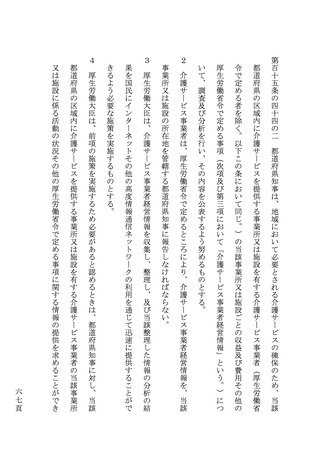 第百十五条の四十四の二　都道府県知事は、地域において必要とされる介護サービスの確保のため、当該
都道府県の区域内に介護サービスを提供する事業所又は施設を有する介護サービス事業者（厚生労働省
令で定める者を除く。以下この条において同じ。）の当該事業所又は施設ごとの収益及び費用その他の
厚生労働省令で定める事項（次項及び第三項において「介護サービス事業者経営情報」という。）につ
いて、調査及び分析を行い、その内容を公表するよう努めるものとする。
２　介護サービス事業者は、厚生労働省令で定めるところにより、介護サービス事業者経営情報を、当該
事業所又は施設の所在地を管轄する都道府県知事に報告しなければならない。
３　厚生労働大臣は、介護サービス事業者経営情報を収集し、整理し、及び当該整理した情報の分析の結
果を国民にインターネットその他の高度情報通信ネットワークの利用を通じて迅速に提供することがで
きるよう必要な施策を実施するものとする。
４　厚生労働大臣は、前項の施策を実施するため必要があると認めるときは、都道府県知事に対し、当該
都道府県の区域内に介護サービスを提供する事業所又は施設を有する介護サービス事業者の当該事業所
又は施設に係る活動の状況その他の厚生労働省令で定める事項に関する情報の提供を求めることができ
六七頁